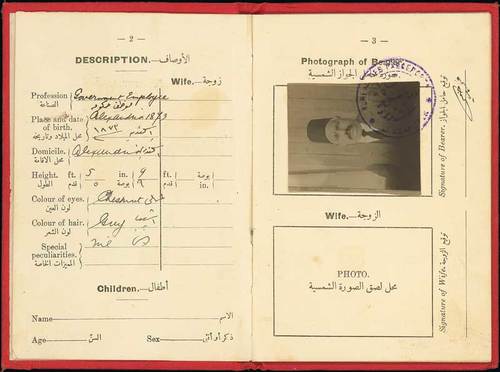 — 2 —
DESCRIPTION. الأوصاف
Wife. زوجة
Profession Government Employee
الصناعة موظف حكومة
Place and date of birth. Alexandria 1873
محل الميلاد وتاريخه ١٨٧٣
Domicile. Alexandria
محل الاقامة
Height. ft. 5 in. 9 ft. in.
الطول قدم ٥ بوصة ٩ قدم بوصة
Colour of eyes. Chestnut
لون العين
Colour of hair. Grey
لون الشعر
Special peculiarities. nil
المميزات الخاصة
Children. أطفال
Name الاسم
Age السن Sex ذكر أو أنثى
— 3 —
Photograph of Bearer.
صورة حامل الجواز الشمسية
Signature of Bearer. توقيع حامل الجواز
Wife. الزوجة
PHOTO.
محل لصق الصورة الشمسية
Signature of Wife. توقيع الزوجة